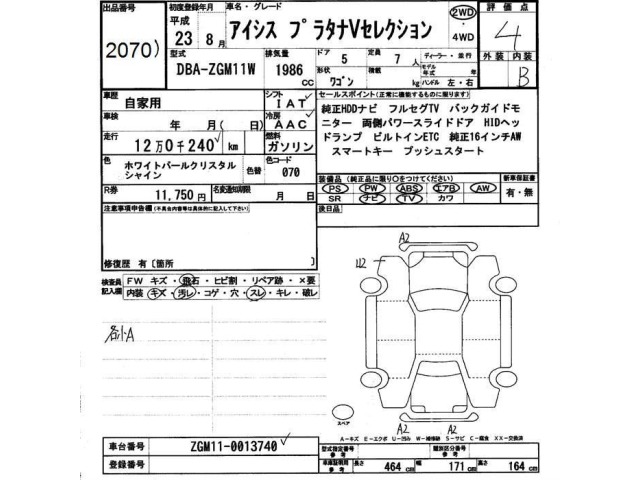 出品番号
2070)
初度登録年月
平成
23 8月
車名・グレード
アイシス プラタナVセレクション
2WD
・
4WD
評価点
4
外装 内装
B
型式
DBA-ZGM11W
排気量
1986
cc
ドア
5
定員
7
人
形状
ワゴン
積載
kg
ディーラー・並行
モデル年式 年
ハンドル 左・右
車歴
自家用
シフト
IAT
車検
年 月( 日)
冷房
AAC
走行
12万0千240 km
燃料
ガソリン
色
ホワイトパールクリスタル
シャイン
色替
色コード
070
R券
11,750円
名変通知期限
月 日
セールスポイント(正常に機能するものに限ります)
純正HDDナビ フルセグTV バックガイドモ
ニター 両側パワースライドドア HIDヘッ
ドランプ ビルトインETC 純正16インチAW
スマートキー プッシュスタート
装備品(純正品に限り○をつけてください)
PS PW ABS エアB AW
SR ナビ TV カワ
新車保証書
有・無
後日品
注意事項申告欄(不具合内容等は具体的に記入して下さい)
修復歴 有〔箇所 〕
検査員
記入欄
FW キズ・飛石・ヒビ割・リペア跡・×要
内装 キズ・汚レ・コゲ・穴・スレ・キレ・破レ
各小A
A2
U2
スペア
A2 A2
A-キズ E-エクボ U-凹み W-補修跡 S-サビ C-腐食 XX-交換済
車台番号
ZGM11-0013740
登録番号
型式指定番号
参考
類別区分番号
参考
車庫証明用
参考
長さ
464 cm
幅
171 cm
高さ
164 cm